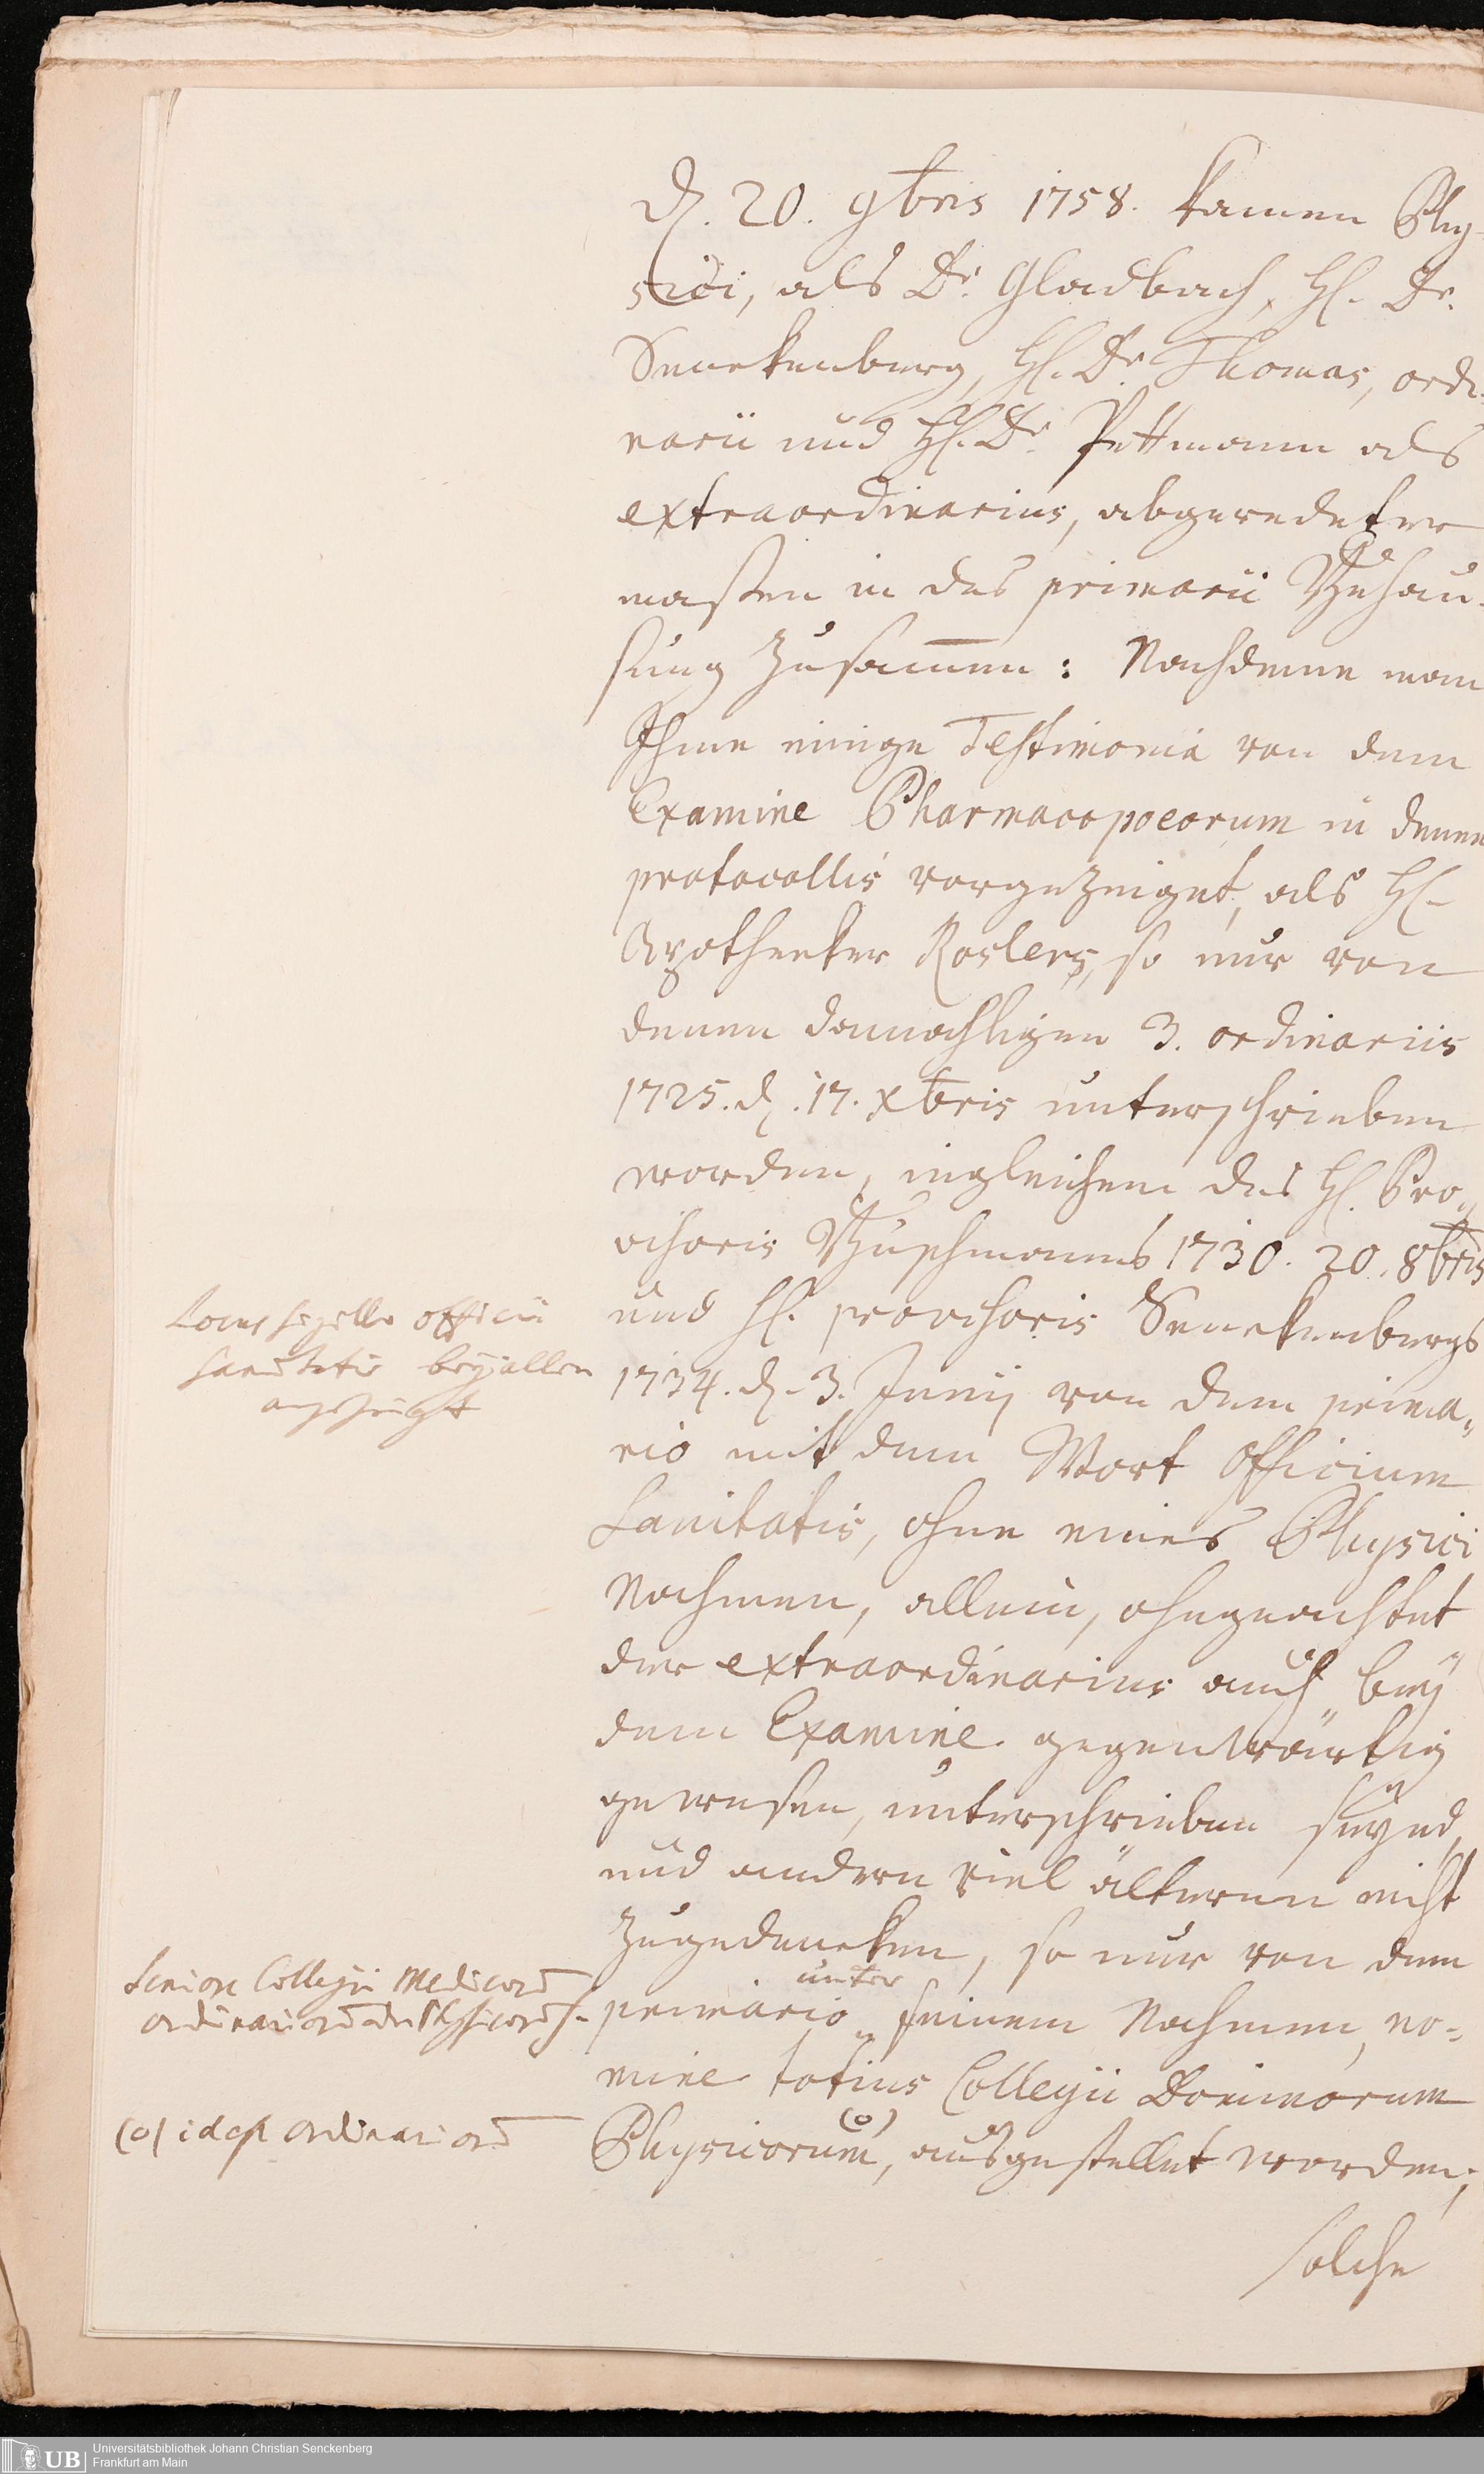 d. 20. 9bris 1758. kamen Phy-
sici, als Dr. Gladbach, H. Dr.
Senckenberg, H. Dr. Thomas, ordi-
narii und H. Dr. Pettmann als
extraordinarius, abgeredeter
maßen in des primarii Behau-
sung zusam̄en: Nachdeme man
Ihme einige Testimonia von dem
Examine Pharmacopoeorum in denen
protocollis vorgezeiget, als H.
Apothecker Roslers, so nur von
denen damahligen 3. ordinariis
1725. d. 17. Xbris unterschrieben
worden, ingleichem des H. Pro-
visoris Buschmanns 1730. 20. 8bris
und H. provisoris Senckenbergs
1734. d. 3. Junij von dem prima-
rio mit dem Wort Officium
Sanitatis, ohne eines Physici
Nahmen, allein, ohngeachtet
der extraordinarius auch bey
dem Examine gegenwärtig
gewesen, unterschrieben seynd,
und andern viel älteren nicht
zugedencken, so nur von dem
unter
primario seinem Nahmen, no-
mine totius Collegii Dominorum
Physicorum (o), ausgestellet worden;
solche
Locus sigilli officii
sanitatis bey allen
Senior Collegii Medicor
ordinarior
(o) id est ordinarior
Universitätsbibliothek Johann Christian Senckenberg
Frankfurt am Main
UB